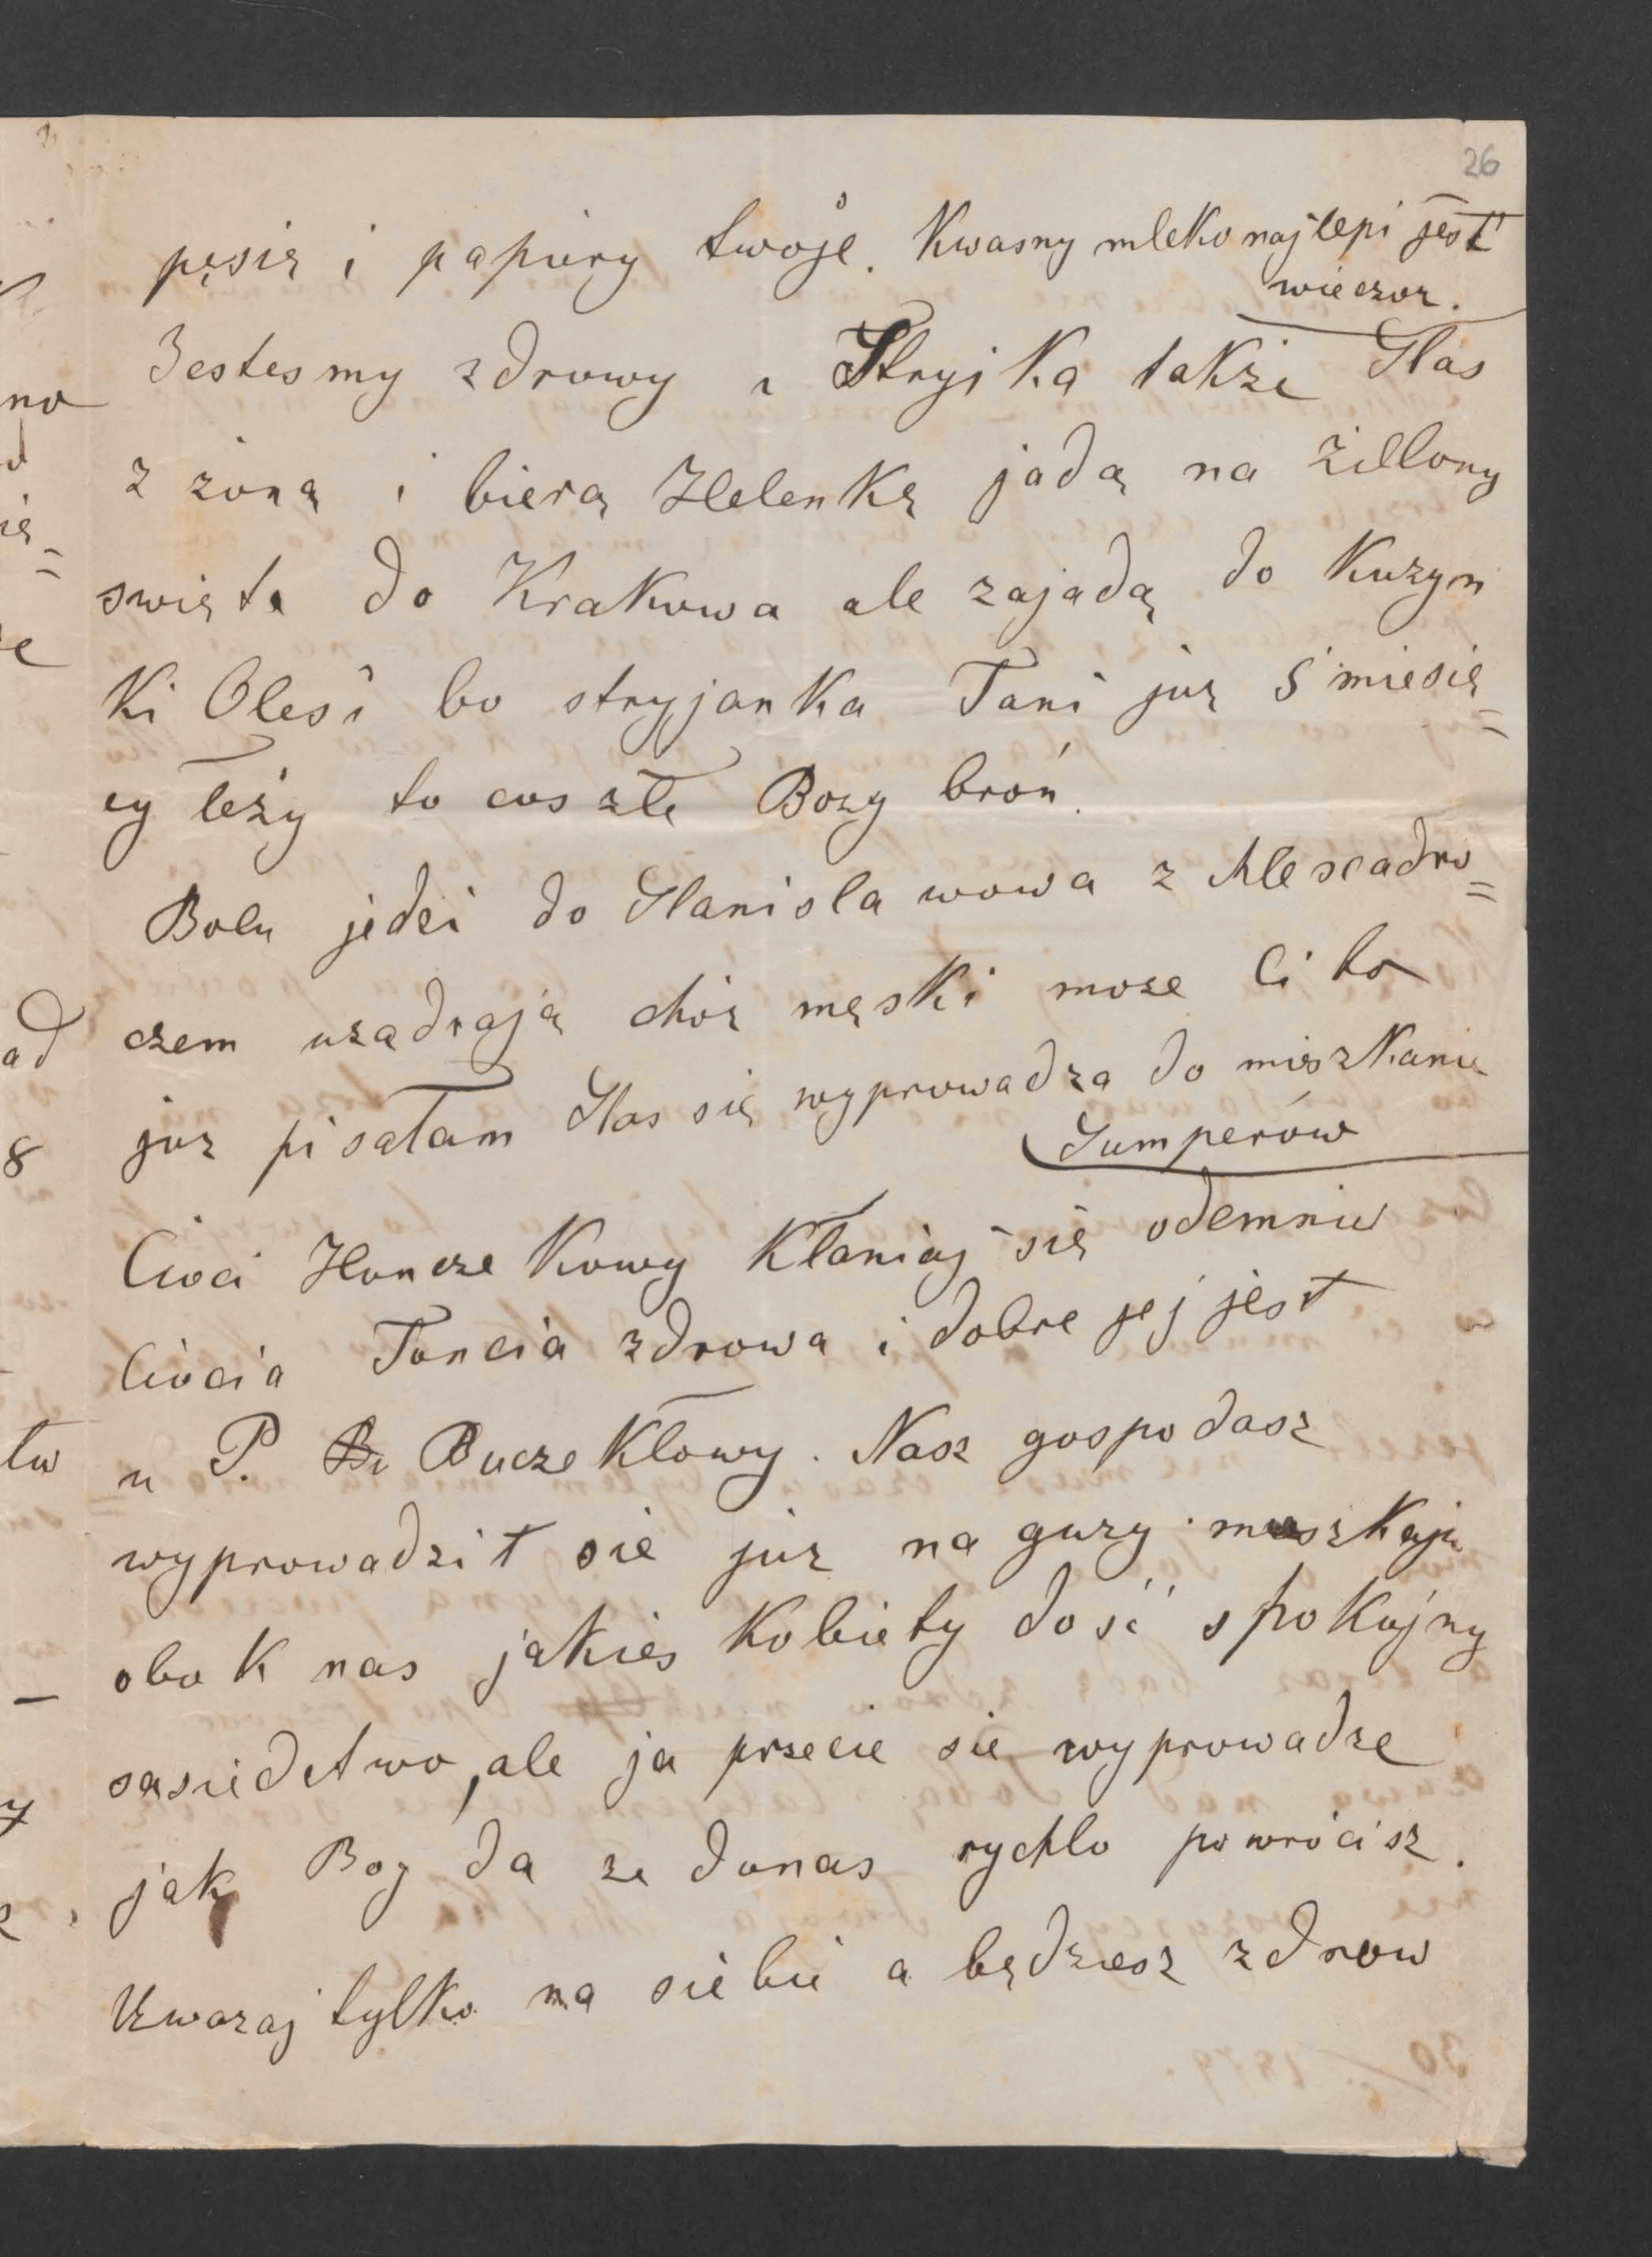 26
pęsię i papiery twoje. Kwasny mleko najlepi jest
wieczor.
Jestesmy zdrowy i Stryjka takze Stas
z żoną i bierą Helenkę jadą na Zillony
swięta do Krakowa ale zajadą do Kuzyn
ki Olesi bo stryjanka Tani już 5 miesię=
cy leży to cos złe Bozy broń.
Bolu jedzi do Stanislawowa z Alexadro=
czem uządzają chór męski moze Ci to
juz pisałam Stas się wyprowadza do mieszkanie
Sumperów
Cioci Honczekowy kłaniaj się odemnie
Ciocia Toncia zdrowa i dobre jej jest
u P. Buczekłowy. Nasz gospodasz
wyprowadzit sie juz na gury mieszkaju
obok nas jakies kobiety dość spokujny
sasiedstwo, ale ja przecie sie wyprowadze
jak Bog da ze donas rychlo powrócisz.
Uwazaj tylko na siebie a będziesz zdrow